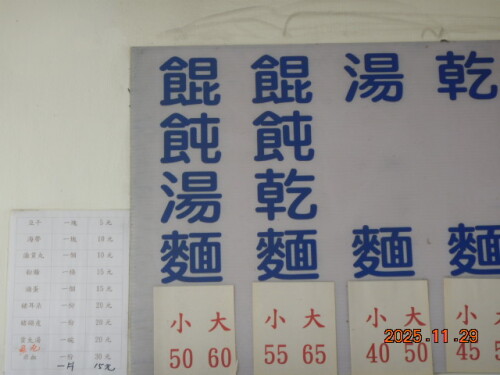 餛飩湯麵
餛飩乾麵
湯麵
乾麵
小 大
50 60
小 大
55 65
小 大
40 50
小 大
45
豆干 一塊 5元
海帶 一條 10元
一個 10元
一條 15元
一個 15元
一份 20元
一份 20元
一碗 20元
一份 30元
一片 15元
2025.11.29